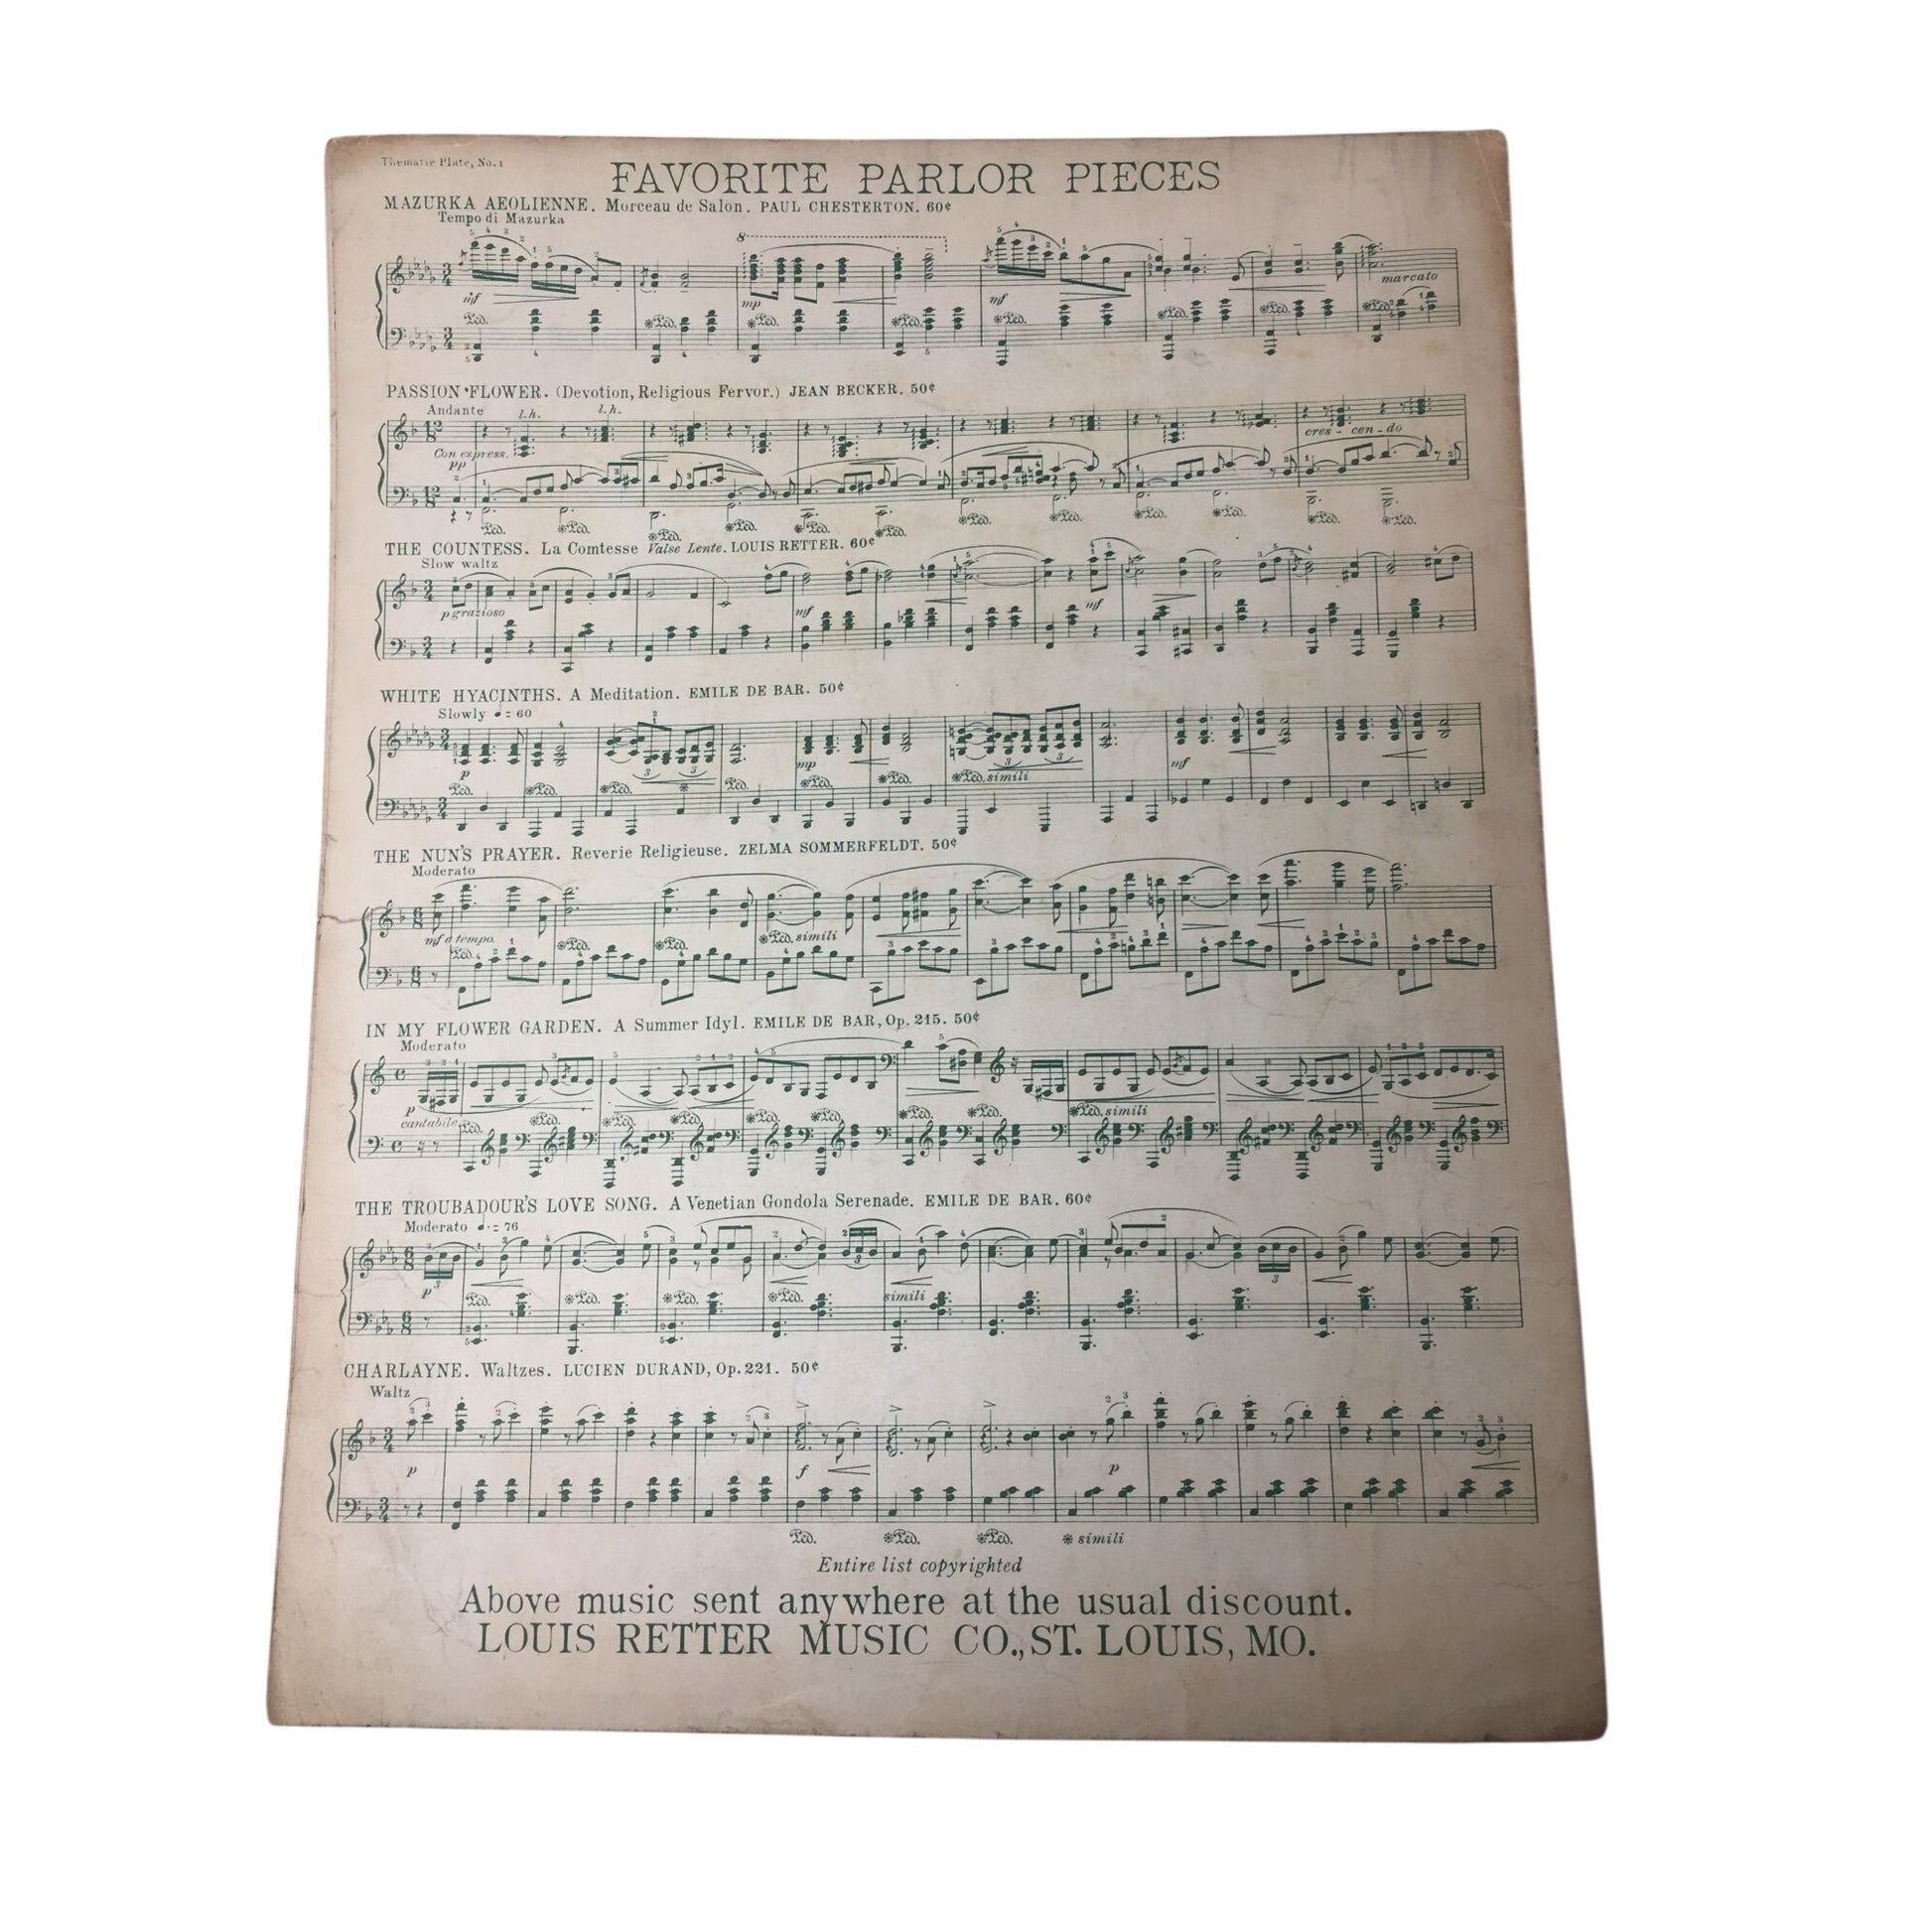 Thematic Plate, No. 1
FAVORITE PARLOR PIECES
MAZURKA AEOLIENNE. Morceau de Salon. PAUL CHESTERTON. 60¢
Tempo di Mazurka
8
mf mp mf marcato
Ped. ※Ped. ※Ped. ※Ped. ※Ped. ※Ped. ※Ped. ※Ped.
PASSION FLOWER. (Devotion, Religious Fervor.) JEAN BECKER. 50¢
Andante l.h. l.h.
Con espress. cres - cen - do
pp
Ped. ※Ped. ※Ped. ※Ped. ※Ped. ※Ped. ※Ped. ※Ped. ※Ped. ※Ped. ※Ped. ※Ped.
THE COUNTESS. La Comtesse Valse Lente. LOUIS RETTER. 60¢
Slow waltz
p grazioso mf mf
WHITE HYACINTHS. A Meditation. EMILE DE BAR. 50¢
Slowly ♩ = 60
p mp mf
Ped. ※Ped. ※Ped. ※ Ped. ※Ped. ※Ped. ※Ped. simili
THE NUN'S PRAYER. Reverie Religieuse. ZELMA SOMMERFELDT. 50¢
Moderato
mf a tempo
Ped. ※Ped. ※Ped. ※Ped. simili
IN MY FLOWER GARDEN. A Summer Idyl. EMILE DE BAR, Op. 215. 50¢
Moderato
p
cantabile
Ped. ※Ped. ※Ped. ※Ped. ※Ped. ※Ped. ※Ped. ※Ped. ※Ped. simili
THE TROUBADOUR'S LOVE SONG. A Venetian Gondola Serenade. EMILE DE BAR. 60¢
Moderato ♩. = 76
p
Ped. ※Ped. ※Ped. ※Ped. simili
CHARLAYNE. Waltzes. LUCIEN DURAND, Op. 221. 50¢
Waltz
p f p
Ped. ※Ped. ※Ped. ※ simili
Entire list copyrighted
Above music sent anywhere at the usual discount.
LOUIS RETTER MUSIC CO., ST. LOUIS, MO.